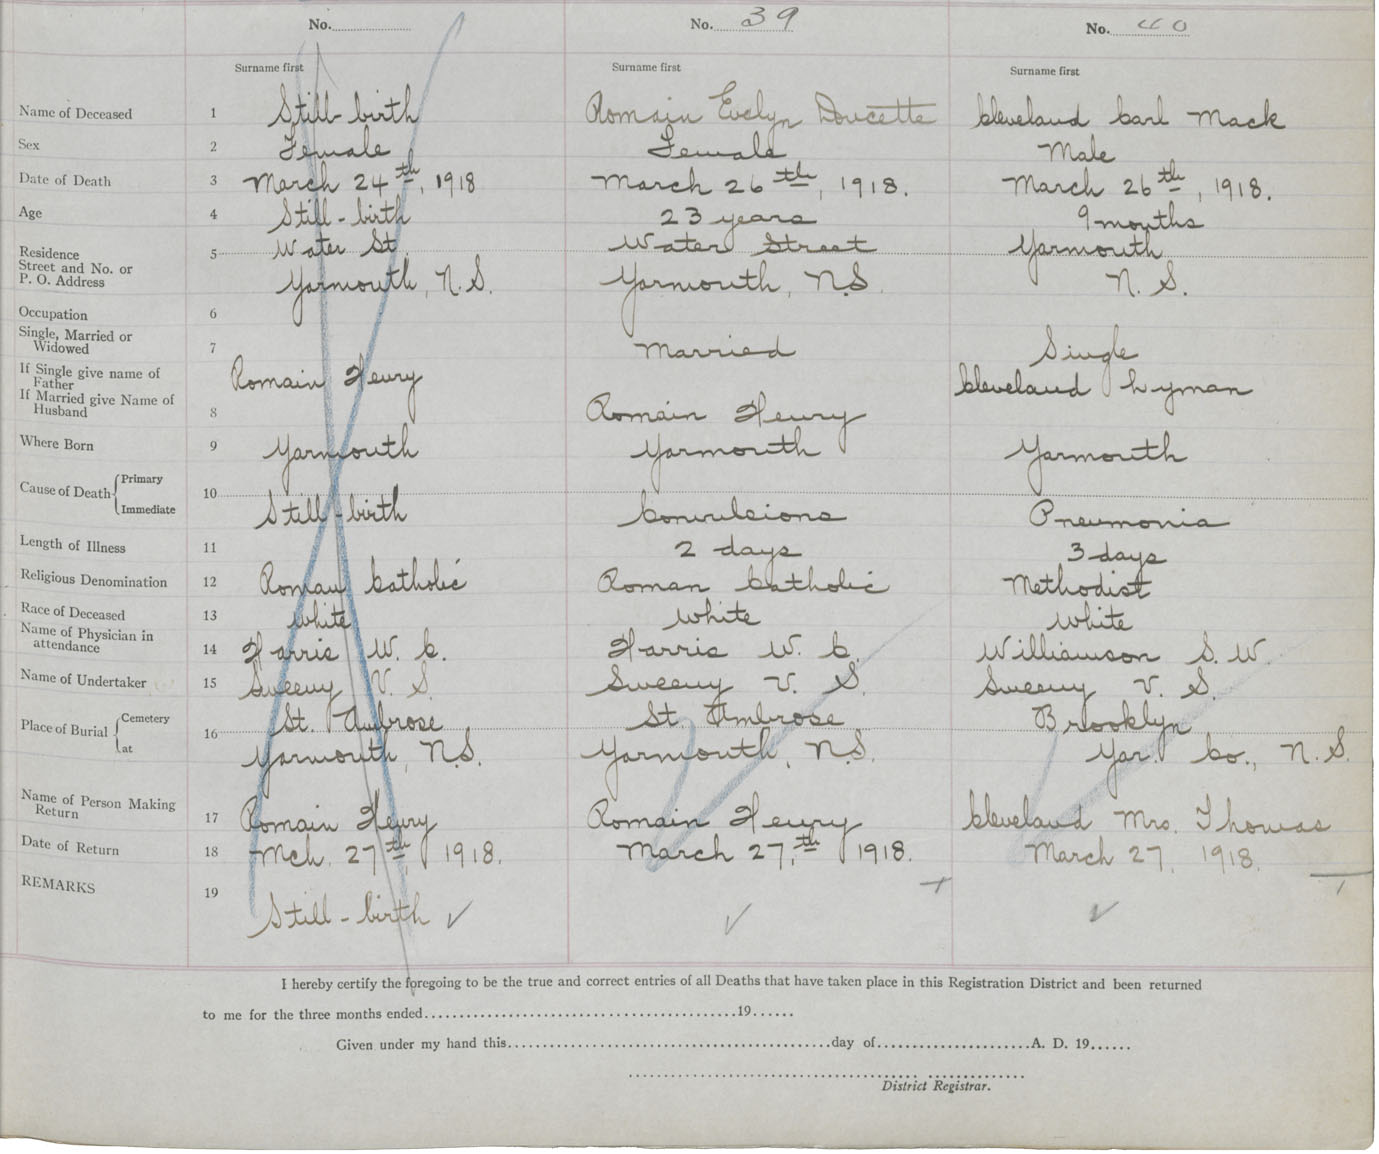 No.
No. 39
No. 40
Surname first
Surname first
Surname first
Name of Deceased 1 Still-birth Romain Evelyn Doucette Cleveland Carl Mack
Sex 2 Female Female Male
Date of Death 3 March 24th, 1918 March 26th, 1918. March 26th, 1918.
Age 4 Still-birth 23 years 9 months
Residence 5 Water St. Water Street Yarmouth
Street and No. or
P. O. Address Yarmouth, N.S. Yarmouth, N.S. N. S.
Occupation 6
Single, Married or
Widowed 7 Married Single
If Single give name of
Father Romain Henry Cleveland Lyman
If Married give Name of
Husband 8 Romain Henry
Where Born 9 Yarmouth Yarmouth Yarmouth
Cause of Death Primary 10
Immediate Still-birth Convulsions Pneumonia
Length of Illness 11 2 days 3 days
Religious Denomination 12 Roman Catholic Roman Catholic Methodist
Race of Deceased 13 White White White
Name of Physician in
attendance 14 Harris W. C. Harris W. C. Williamson S. W.
Name of Undertaker 15 Sweeny V. S. Sweeny V. S. Sweeny V. S.
Place of Burial Cemetery 16 St. Ambrose St. Ambrose Brooklyn
at Yarmouth, N.S. Yarmouth, N.S. Yar. Co., N.S.
Name of Person Making
Return 17 Romain Henry Romain Henry Cleveland Mrs. Thomas
Date of Return 18 Mch. 27th, 1918. March 27,th 1918. March 27, 1918.
REMARKS 19 Still-birth
I hereby certify the foregoing to be the true and correct entries of all Deaths that have taken place in this Registration District and been returned
to me for the three months ended 19
Given under my hand this day of A. D. 19
District Registrar.